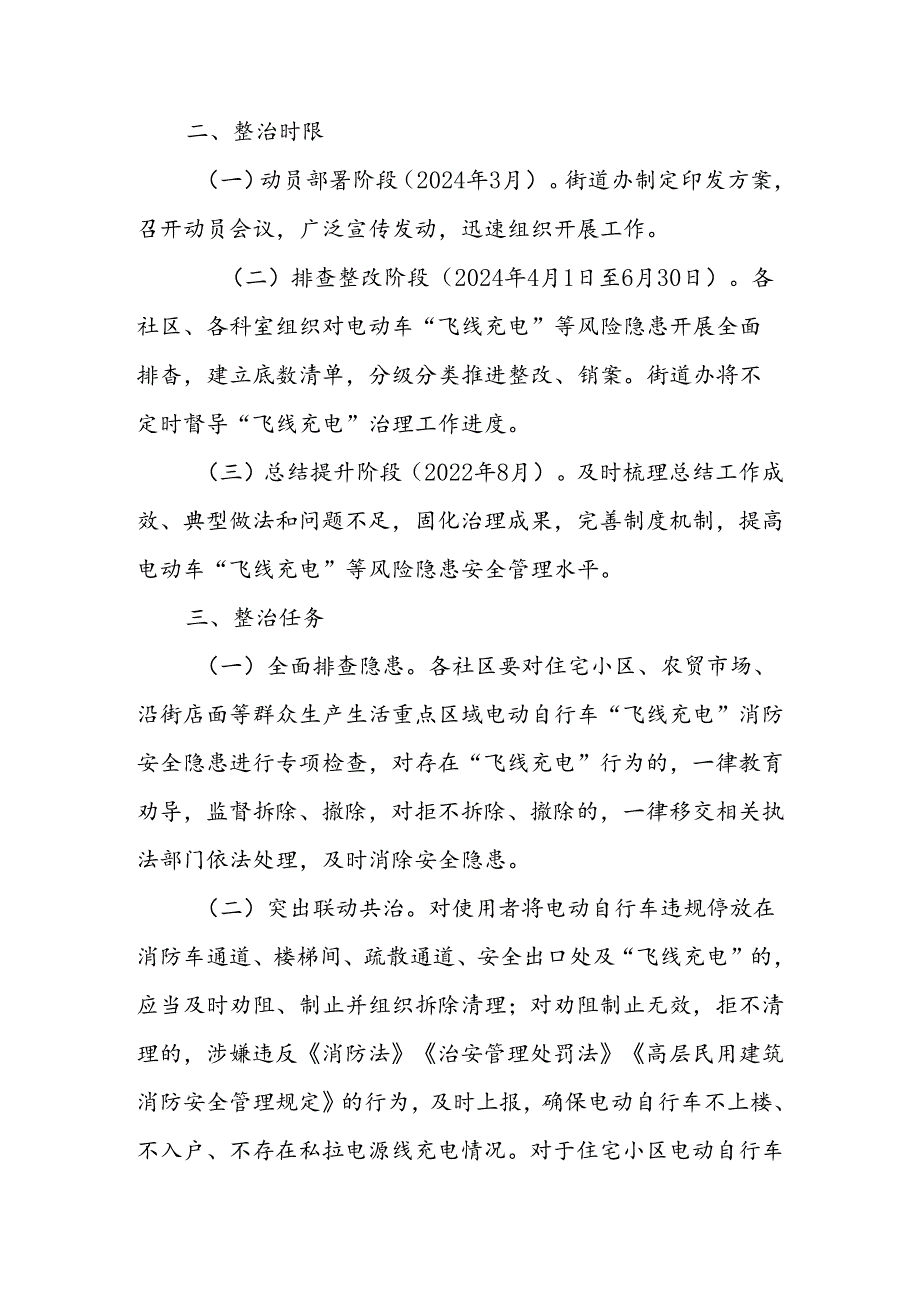 二、整治时限
（一）动员部署阶段（2024年3月）。街道办制定印发方案，
召开动员会议，广泛宣传发动，迅速组织开展工作。
（二）排查整改阶段（2024年4月1日至6月30日）。各
社区、各科室组织对电动车“飞线充电”等风险隐患开展全面
排查，建立底数清单，分级分类推进整改、销案。街道办将不
定时督导“飞线充电”治理工作进度。
（三）总结提升阶段（2022年8月）。及时梳理总结工作成
效、典型做法和问题不足，固化治理成果，完善制度机制，提高
电动车“飞线充电”等风险隐患安全管理水平。
三、整治任务
（一）全面排查隐患。各社区要对住宅小区、农贸市场、
沿街店面等群众生产生活重点区域电动自行车“飞线充电”消防
安全隐患进行专项检查，对存在“飞线充电”行为的，一律教育
劝导，监督拆除、撤除，对拒不拆除、撤除的，一律移交相关执
法部门依法处理，及时消除安全隐患。
（二）突出联动共治。对使用者将电动自行车违规停放在
消防车通道、楼梯间、疏散通道、安全出口处及“飞线充电”的，
应当及时劝阻、制止并组织拆除清理；对劝阻制止无效，拒不清
理的，涉嫌违反《消防法》《治安管理处罚法》《高层民用建筑
消防安全管理规定》的行为，及时上报，确保电动自行车不上楼、
不入户、不存在私拉电源线充电情况。对于住宅小区电动自行车